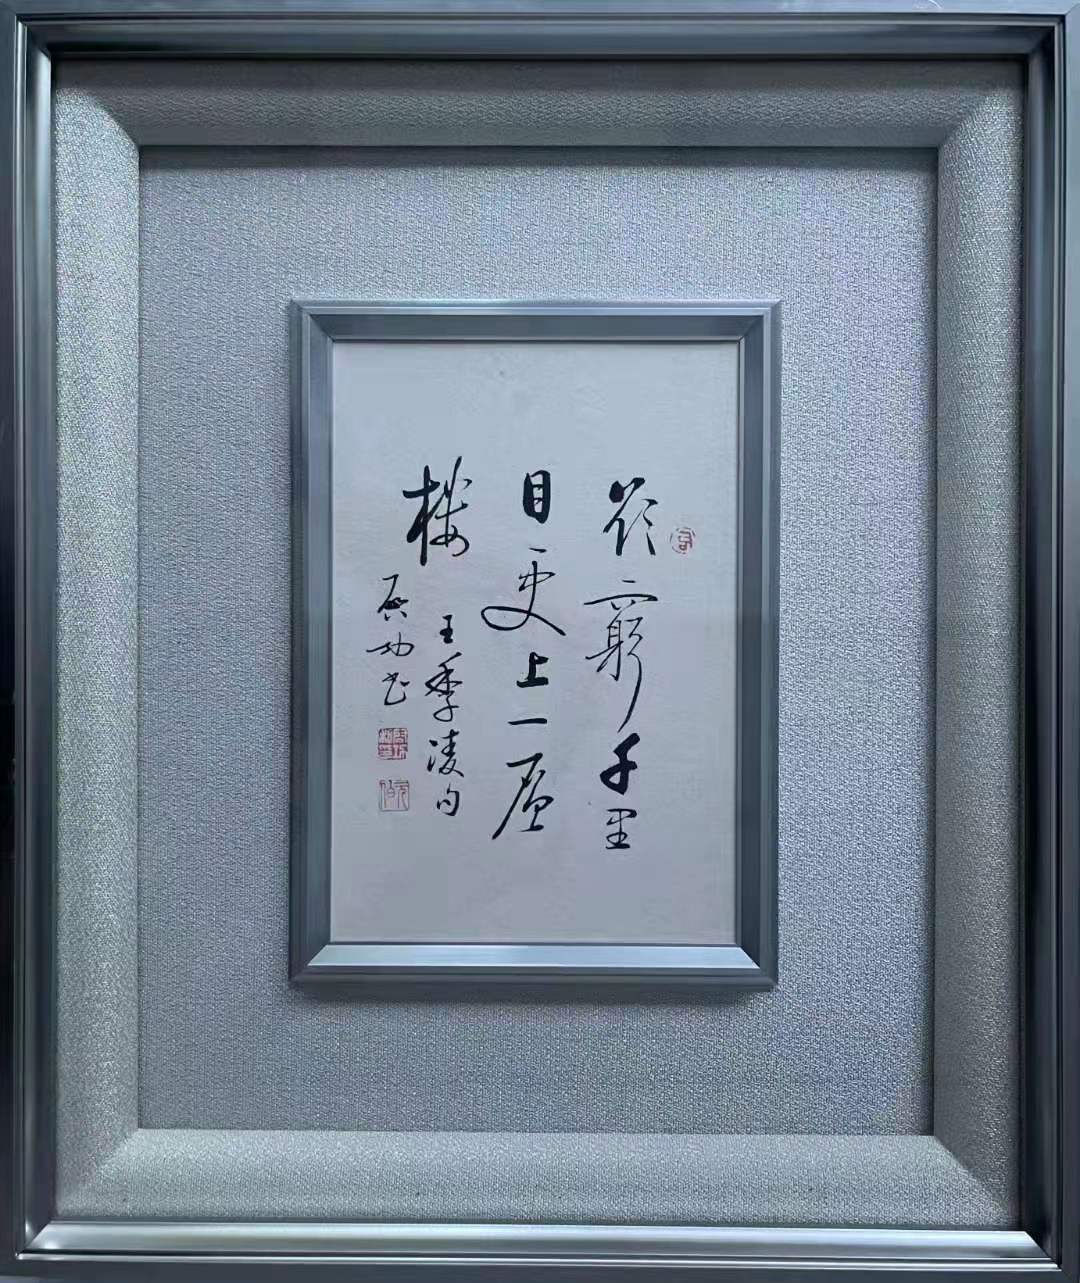 欲窮千里
目更上一層
樓
王季凌句
啟功書